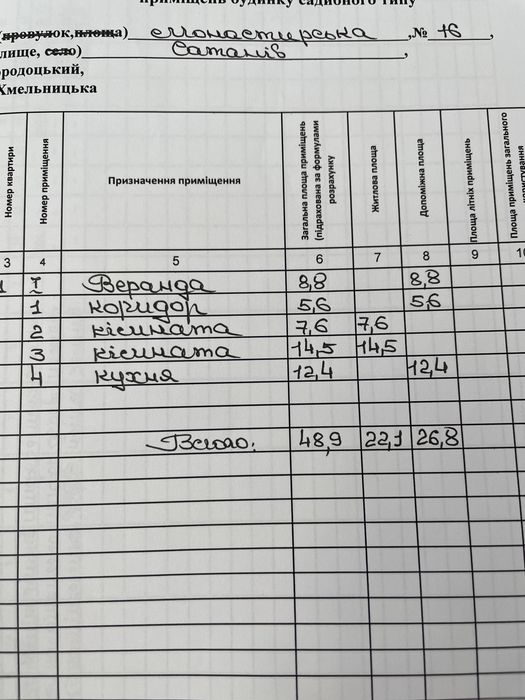 приміщень будинку садибного типу
(провулок,площа) Монастирська ,№ 16 ,
лище, село) Сатанів ,
родоцький,
Хмельницька
Номер квартири Номер приміщення Призначення приміщення Загальна площа приміщень (підрахована за формулами розрахунку Житлова площа Допоміжна площа Площа літніх приміщень Площа приміщень загального користування
3 4 5 6 7 8 9 10
1 I Веранда 8,8 8,8
1 коридор 5,6 5,6
2 кімната 7,6 7,6
3 кімната 14,5 14,5
4 кухня 12,4 12,4
Всього: 48,9 22,1 26,8